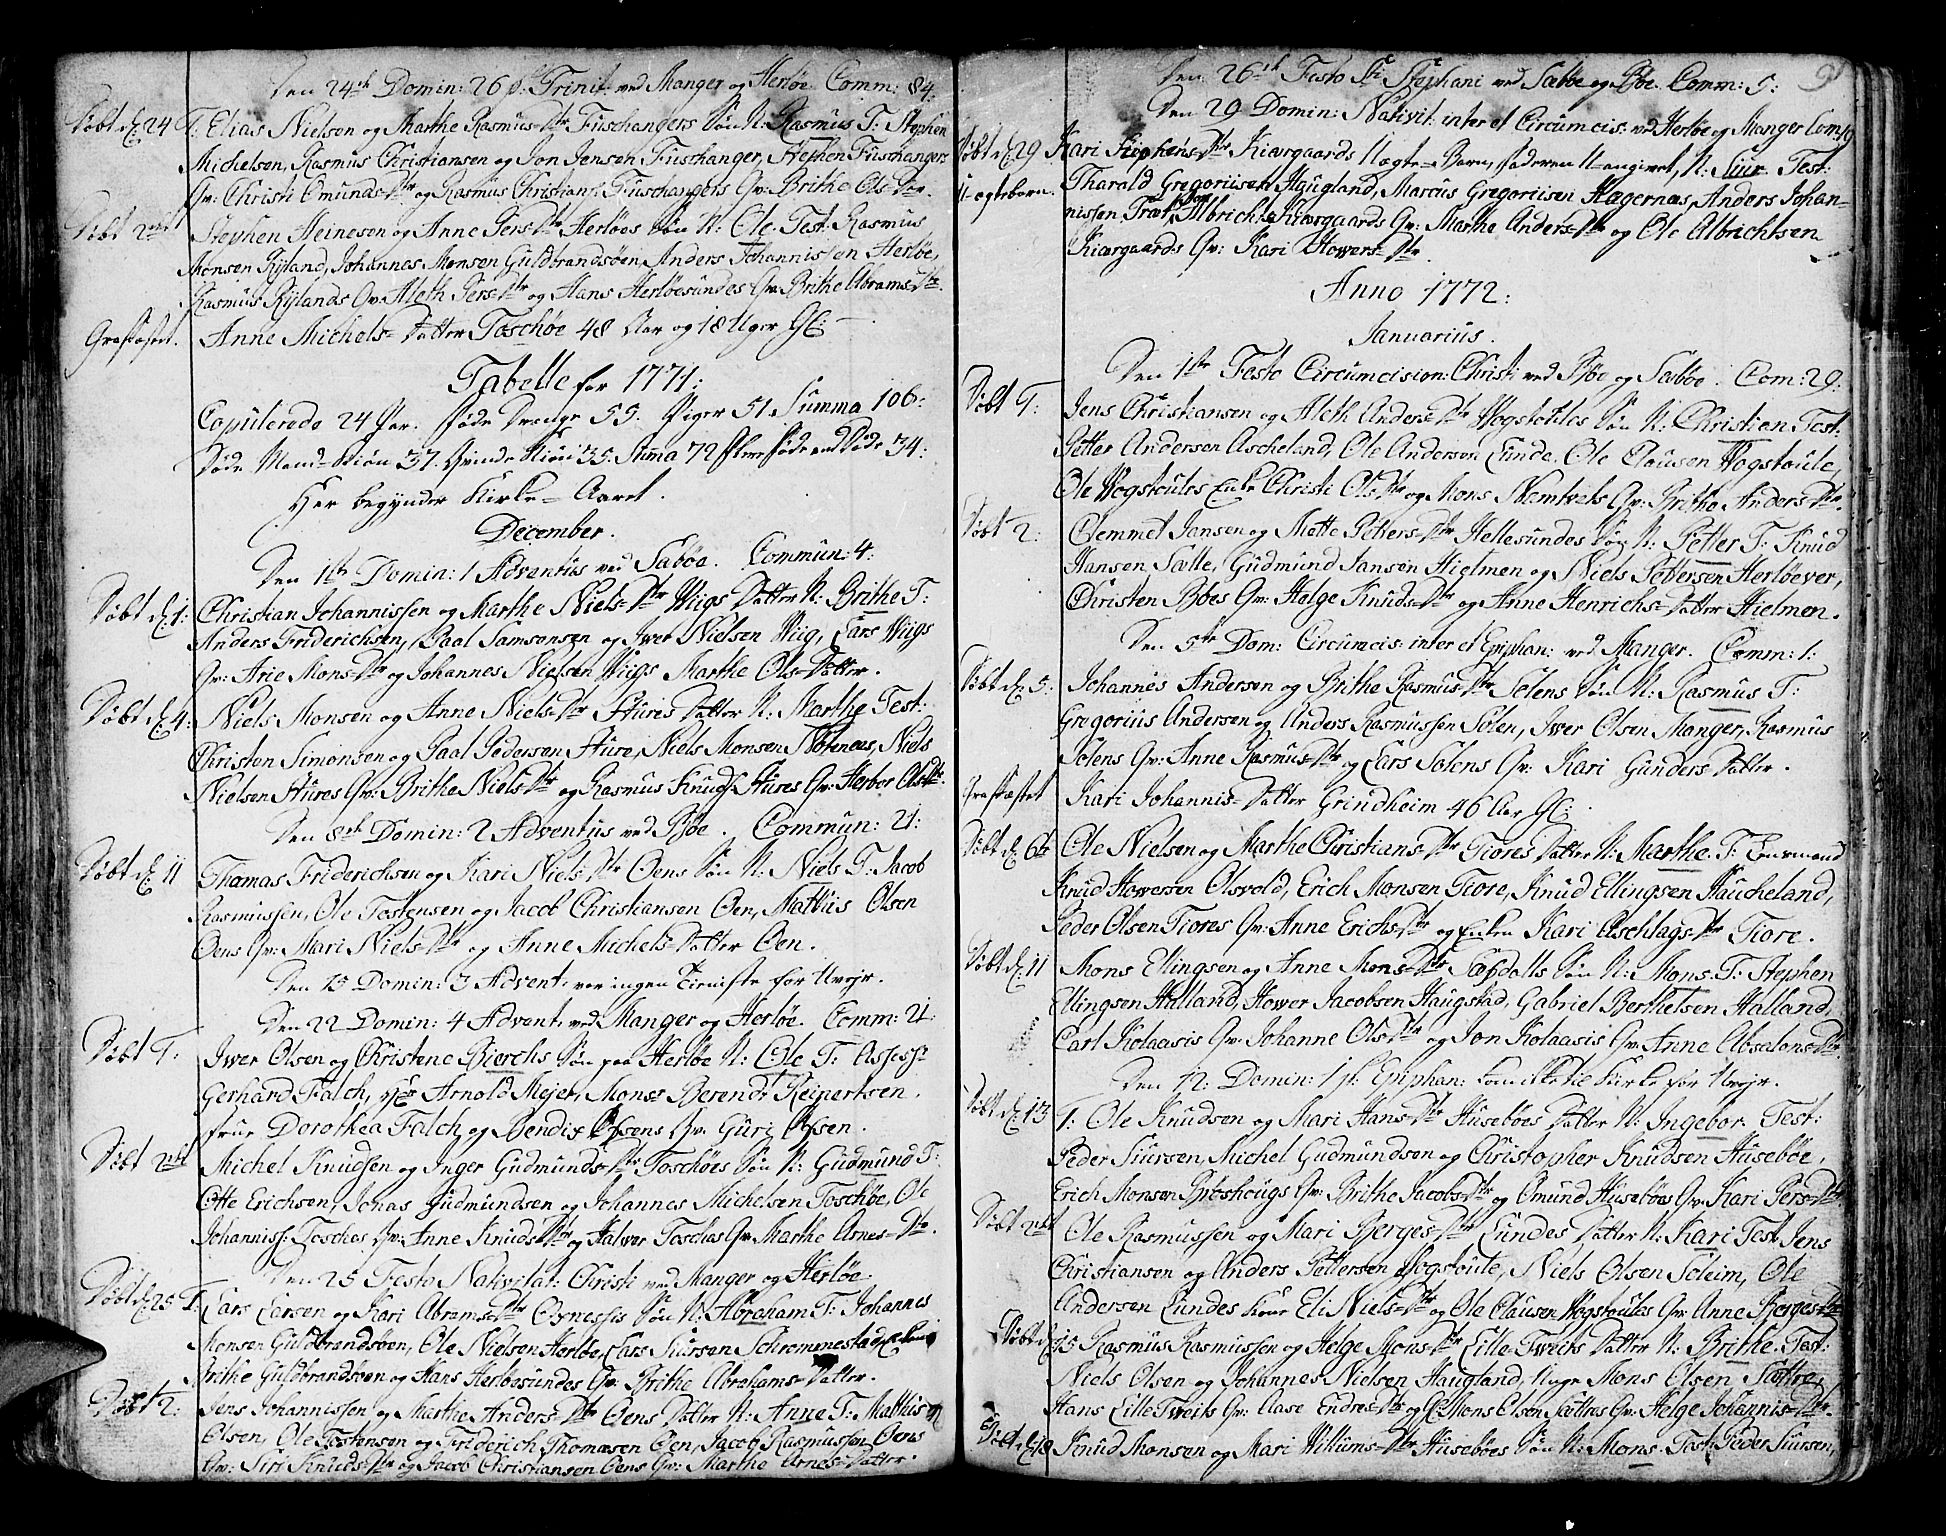 Den 24de Domin: 26 p. Trinit: ved Manger og Herløe. Comm: 84.
Døbt d. 24 T: Elias Nielsen og Marthe Rasmus-Dtr Fuschangers Søn N: Rasmus T: Stephen
Michelsen, Rasmus Christiansen og Jon Jensen Fuschanger, Stephen Fuschangers
Qv: Christi Omunds-Dtr og Rasmus Christians: Fuschangers Qv: Brithe Ols-Dtr.
Døbt 2det Stephen Heinesen og Anne Pers-Dtr Herløes Søn N: Ole. Test: Rasmus
Monsen Rijland, Johannes Monsen Guldbrandsøen, Anders Johannissen Herløe,
Rasmus Rijlands Qv: Aleth Pers-Dtr og Hans Herløesundes Qv: Brithe Abrams-Dtr.
Grafæstet. Anne Michels-Datter Toschøe 48 Aar og 18 Uger Gl:
Tabelle for 1771:
Copulerede 24 Par. fødde Drenge 55. Piger 51. Summa 106.
Døde Mand-Kiøn 37. Qvinde Kiøn 35. Suma 72 flere fødde end Døde 34:
Her begynder Kirke-Aaret.
December.
Den 1ste Domin: 1 Adventus ved Sæbøe. Commun: 4:
Døbt d. 1: Christian Johannissen og Marthe Niels-Dtr Wiigs Datter N: Brithe T:
Anders Friderichsen, Paal Samsonsen og Iver Nielsen Wiig, Lars Wiigs
Qv: Arie Mons-Dtr og Johannes Nielsen Wiigs Marthe Ols-Datter.
Døbt d. 4: Niels Monsen og Anne Niels-Dtr Stures Datter N: Marthe Test:
Christen Simonsen og Paal Pedersen Sture, Niels Monsen Nøtenæs, Niels
Nielsen Stures Qv: Brithe Niels-Dtr og Rasmus Knuds: Stures Qv: Herbor Ols Dtr.
Den 8de Domin: 2 Adventus ved Bøe. Commun: 21:
Døbt d. 11 Thomas Friderichsen og Kari Niels-Dtr Oens Søn N: Niels T: Jacob
Rasmussen, Ole Tostensen og Jacob Christiansen Oen, Mathis Olsen
Oens Qv: Mari Niels-Dtr og Anne Michels-Datter Oen.
Den 15 Domin: 3 Advent. var ingen Tieniste for Uvejr.
Den 22 Domin: 4 Advent. ved Manger og Herløe. Comm: 21:
Døbt T: Iwer Olsen og Christene Bierchs Søn paa Herløe N: Ole T: Assess:
Gerhard Falch, Hr Arnold Mejer, Monsr Berendt Reipertsen.
frue Dorothea Falch, og Bendix Olsens Qv: Guri Olsen.
Døbt 2det Michel Knudsen og Inger Gudmunds-Dtr Toschøes Søn N: Gudmund T:
Otte Erichsen, Jonas Gudmundsen og Johannes Michelsen Toschøe, Ole
Johanniss: Tosches Qv: Anne Knuds Dtr og Halver Toschøs Qv: Marthe Arnes-Dtr.
Den 25 Festo Nativitat: Christi ved Manger og Herløe.
Døbt d. 25 T: Lars Larsen og Kari Abrams-Dtr Øynesses Søn N: Abraham T: Johannes
Monsen Guldbrandsøen, Ole Nielsen Herløe, Lars Siursen Schrommestad,
Brithe Guldbrandsøen og Hans Herløesundes Qv: Brithe Abrahams-Datter.
Døbt 2: Jens Johannissen og Marthe Anders-Dtr Oens Datter N: Anne T: Mathis
Olsen, Ole Tostensen og Friderich Thomæsen Oen, Jacob Rasmussen Oens
Qv: Siri Knuds-Dtr og Jacob Christiansen Oens Qv: Marthe Arnes-Datter.
Den 26de Festo Sti Stephani ved Sæbøe og Bøe. Comm: 5:
Den 29 Domin: Nativit: inter et Circumcis: ved Herløe og Manger Com: 19
Døbt d. 29 Kari Stephens-Dtr Kiærgaards Uægte-Barn, faderen U-angivet, N: Siur. Test:
U-ægtebarn. Tharald Gregoriisen Haugland, Marcus Gregoriisen Hagernæs, Anders Johan-
nissen Træt, Albrichts Kiærgaards Qv: Marthe Anders-Dtr og Ole Albrichtsen
Kiærgaards Qv: Kari Howers-Dtr.
Anno 1772:
Januarius.
Den 1ste Festo Circumcision: Christi ved Bøe og Sæbøe. Com: 29:
Døbt T: Jens Christiansen og Aleth Anders-Dtr Hogstoules Søn N: Christien Test:
Petter Andersen Ascheland, Ole Andersen Lunde. Ole Clausen Hogstoule,
Ole Hogstoules Enke Christi Ols-Dtr og Mons Nemtvets Qv: Brithe Anders-Dtr.
Døbt 2: Clemmet Jansen og Mette Petters-Dtr Hellesundes Søn N: Petter T: Knud
Hansen Sælle, Gudmund Jansøn Hielmen og Niels Pettersen Herløever,
Christen Bøes Qv: Helge Knuds-Dtr og Anne Henrichs-Datter Hielmen.
Den 5te Dom: Circumcis: inter et Epiphan: ved Manger. Comm: 1:
Døbt d. 5. Johannes Andersen og Brithe Rasmus-Dtr Solens Søn N: Rasmus T:
Gregorius Andersen og Anders Rasmussen Solen, Iwer Olsen Manger, Rasmus
Solens Qv: Anne Rasmus-Dtr og Lars Solens Qv: Kari Gunders-Datter.
Grafæstet Kari Johannis-Datter Grindheim 46 Aar Gl:
Døbt d. 6te Ole Nielsen og Marthe Christians-Dtr Tiores Datter N: Marthe. T: Lensmand
Knud Howersen Olsvold, Erich Monsen Tiore, Knud Ellingsen Haucheland,
Peder Olsen Tiores Qv: Anne Erichs-Dtr og Enken Kari Aschlags-Dtr Tiore.
Døbt d. 11 Mons Ellingsen og Anne Mons-Dtr Søn N: Mons. T: Stephen
Ellingsen Halland, Hower Jacobsen Haugstad, Gabriel Berthelsen Halland,
Carl Kolaasis Qv: Johanne Ols Dtr og Jon Kolaasis Qv: Anne Absalons-Dtr
Den 12: Domin: 1 p. Epiphan: kom ikke til Kirke for Uvejr.
Døbt d. 13 T: Ole Knudsen og Mari Hans-Dtr Husebøes Datter N: Ingebor. Test:
Peder Siursen, Michel Gudmundsen og Christopher Knudsen Husebøe,
Erich Monsen Brøshougs Qv: Brithe Jacobs-Dtr og Omund Husebøes Qv: Kari Pers-Dtr
Døbt 2det Ole Rasmussen og Mari Berges-Dtr Lundes Datter N: Kari Test: Jens
Christiansen og Anders Pettersen Hogstoule, Niels Olsen Soleim, Ole
Andersen Lundes Kone Eli Niels-Dtr og Ole Clausen Hogstoules Qv: Anne Berges-Dtr
Døbt d. 15 Rasmus Rasmussen og Helge Mons-Dtr Lille Tweits Datter N: Brithe. Test:
Niels Olsen og Johannes Nielsen Haugland, Unge Mons Olsen Sættre,
Hans Lille Tweits Qv: Aase Endres-Dtr og Gl: Mons Olsen Sættres Qv: Helge Johannis-Dtr.
Døbt d. 18 Knud Monsen og Mari Willums-Dtr Husebøes Søn N: Mons. Test: Peder Siursen,